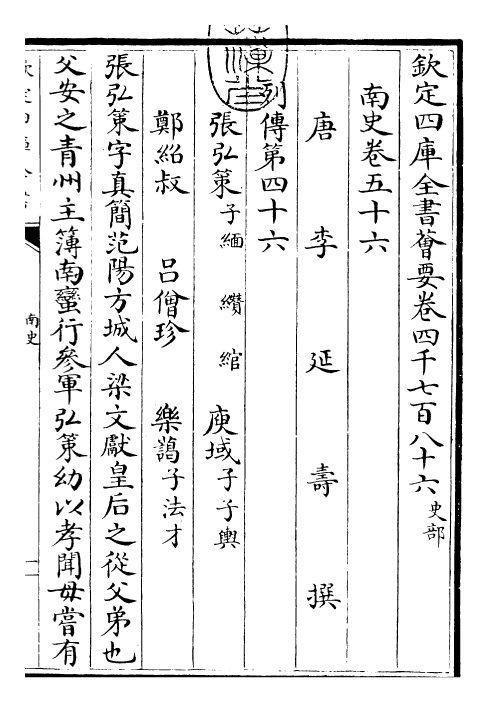 欽定四庫全書薈要卷四千七百八十六史部
南史卷五十六
唐李延壽撰
列傳第四十六
張弘策子緬 纘 綰 庾域子子輿
鄭紹叔 呂僧珍 樂藹子法才
張弘策字真簡范陽方城人梁文獻皇后之從父弟也
父安之青州主簿南蠻行參軍弘策幼以孝聞母嘗有
南史